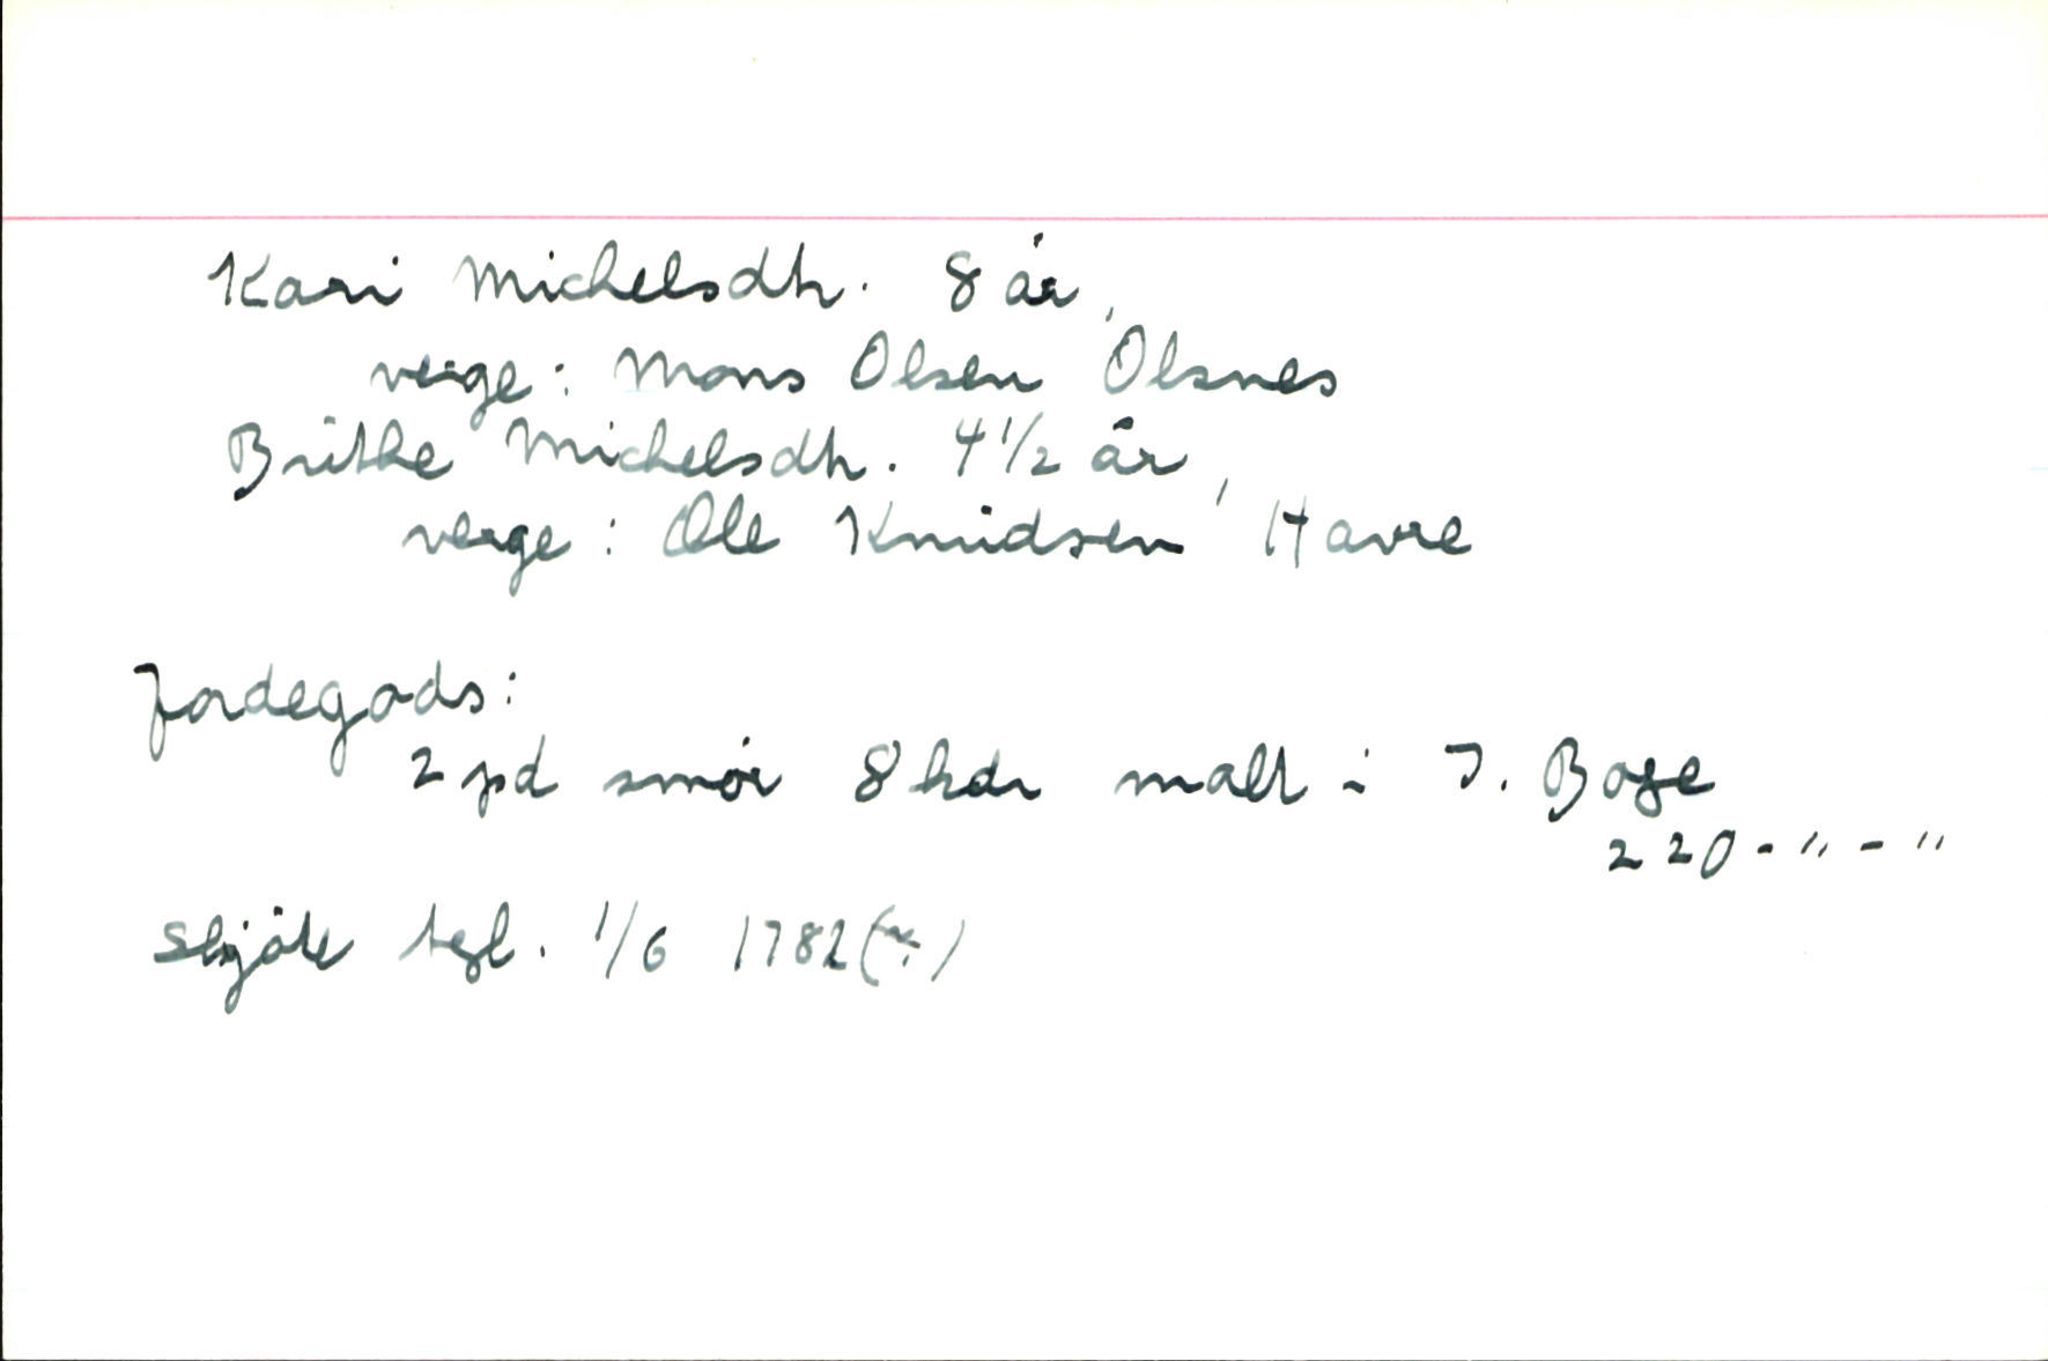 Kari Michelsdtr. 8 år,
verge: Mons Olsen Olsnes
Brithe Michelsdtr. 4 1/2 år,
verge: Ole Knudsen Havre
Jordegods:
2 pd smør 8 kdr malt i I. Boge
220 - " - "
Skjöte tgl. 1/6 1782 (?)